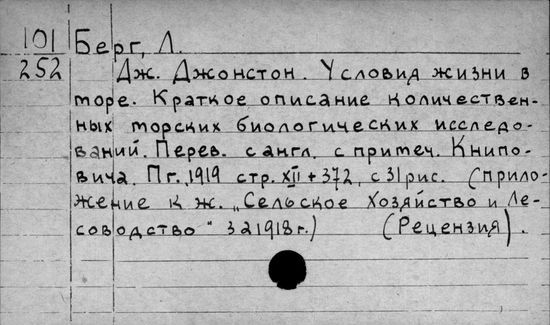 101 Берг, Л.
252 Дж. Джонстон. Условия жизни в
море. Краткое описание количествен-
ных морских биологических исследо-
ваний. Перев. с англ. с примеч. Книпо-
вича. Пг., 1919 стр. XII + 372, с 31 рис. (Прило-
жение к ж. „Сельское Хозяйство и Ле-
соводство" за 1918 г.) (Рецензия).